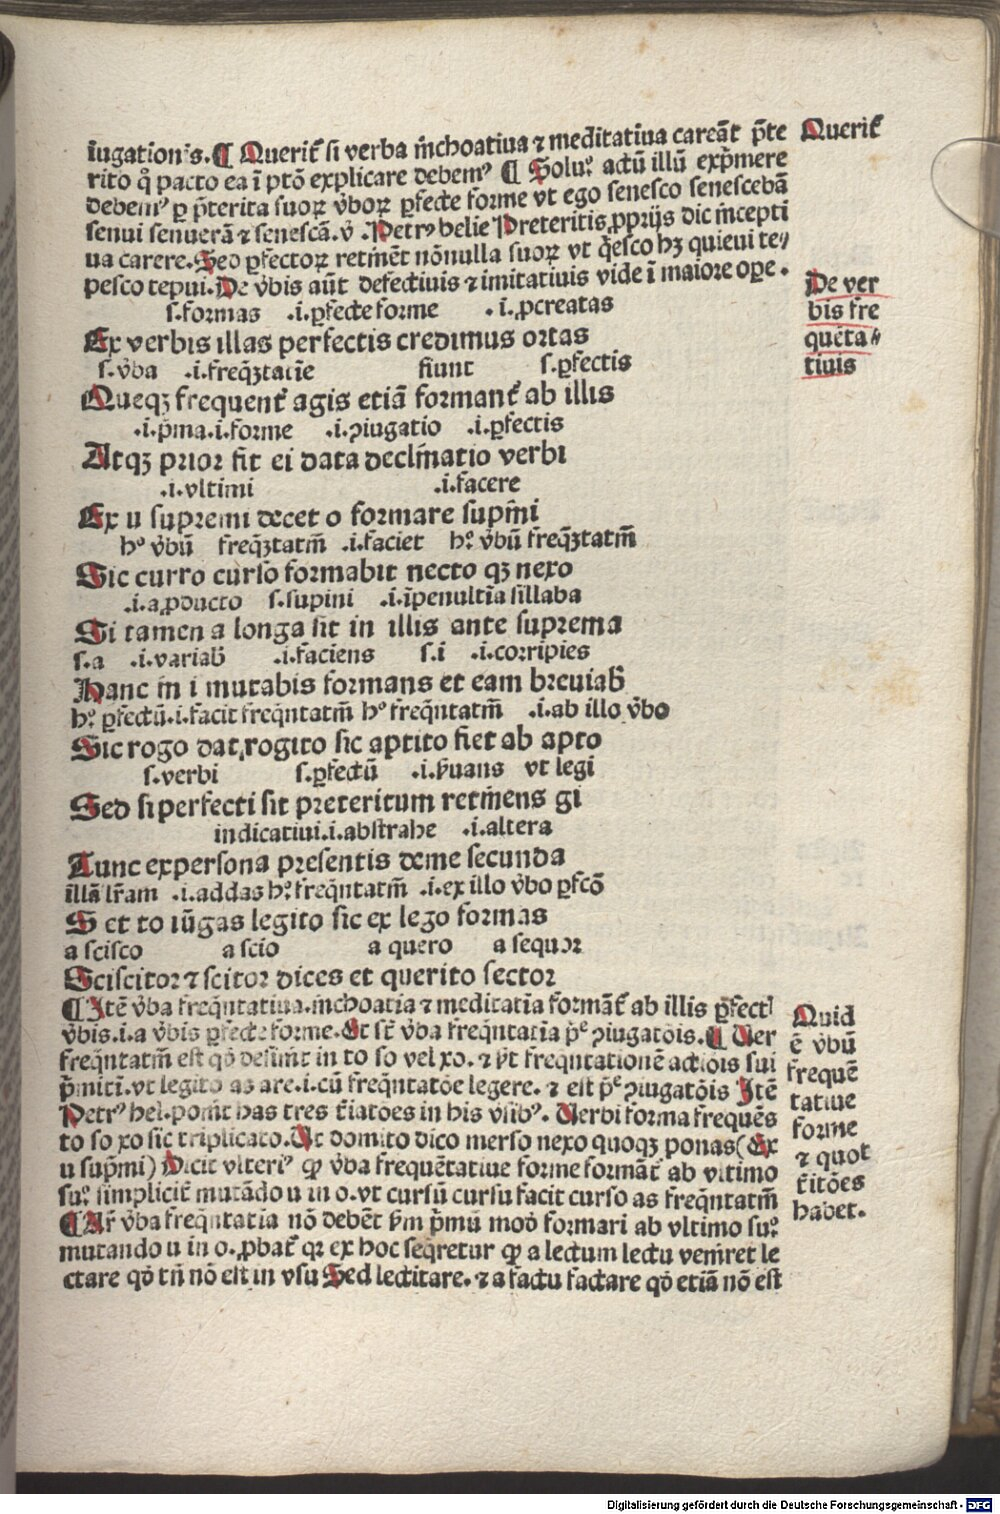 iugationis.¶ Querit̃ si verba inchoatiua ⁊ meditatiua careãt p̃te
Querit̃
rito q̊ pacto ea ĩ ptõ explicare debemꝰ ¶ Soluꝰ actũ illũ exp̃mere
debemꝰ ꝑ p̃terita suoꝝ v̾boꝝ ꝑfecte forme vt ego senesco senescebã
senui senuerã ⁊ senescã. v̾ .Petrꝰ helie Preteritis ꝓprijs dic incepti
ua carere. Sed ꝑfectoꝝ retinẽt nõnulla suoꝝ vt q̇esco hꝫ quieui te⸗
pesco tepui. De v̾bis aũt defectiuis ⁊ imitatiuis vide ĩ maiore oꝑe.
De ver
bis fre
quẽta⸗
tiuis
s.formas .i.ꝑfecte forme .i.ꝓcreatas
Ex verbis illas perfectis credimus ortas
s.v̾ba .i.freq̃ꝫtatiẽ fiunt s.ꝑfectis
Queqꝫ frequent̃ agis etiã formant̃ ab illis
.i.p̃ma.i.forme .i.ꝯiugatio .i.ꝑfectis
Atqꝫ prior fit ei data declinatio verbi
.i.vltimi .i.facere
Ex u supremi decet o formare supini
hꝰ v̾bũ freq̃ꝫtatiũ .i.faciet hꝰ v̾bũ freq̃ꝫtatiũ
Sic curro curso formabit necto qꝫ nexo
.i.a ꝓducto s.supini .i.ĩpenultĩa sillaba
Si tamen a longa sit in illis ante suprema
s.a .i.variab̃ .i.faciens s.i .i.corripies
Hanc in i mutabis formans et eam breuiab̃
hꝰ ꝑfectũ.i.facit freq̃ntatiũ hꝰ freq̃ntatiũ .i.ab illo v̾bo
Sic rogo dat rogito sic aptito fiet ab apto
s.verbi s.ꝑfectũ .i.p̃uans vt legi
Sed si perfecti sit preteritum retinens gi
indicatiui.i.abstrahe .i.altera
Tunc expersona presentis deme secunda
illã lr̃am .i.addas hꝰ freq̃ntatiũ .i.ex illo v̾bo ꝑfcõ
S et to iũgas legito sic ex lego formas
a scisco a scio a quero a sequor
Sciscitor ⁊ scitor dices et querito sector
¶ Itẽ v̾ba freq̃ntatiua.inchoatia ⁊ meditatia formãt̃ ab illis ꝑfect̃
v̾bis.i.a v̾bis ꝑfecte forme. Et st̃ v̾ba freq̃ntatia p̃ᵉ ꝯiugatõis. ¶ Uer
freq̃ntatiũ est qd̾ desinit in to so vel xo. ⁊ hʒ̃ freq̃ntationẽ actiõis sui
p̃mitĩ.vt legito as are.i.cũ freq̃ntatõe legere. ⁊ est p̃ᵉ ꝯiugatõis Itẽ
Petrꝰ hel.ponit has tres t̃iatões in his vĩsibꝰ. Uerbi forma frequẽs
to so xo sic triplicato. Ut domito dico merso nexo quoqꝫ ponas (Ex
u sup̃mi) Dicit vlteriꝰ ꝙ v̾ba frequẽtatiue forme formãt̃ ab vltimo
suꝰ simplicit̃ mutãdo u in o.vt cursũ cursu facit curso as freq̃ntatiũ
¶ Ar̃ v̾ba freq̃ntatia nõ debẽt h̾m p̃mũ modũ formari ab vltimo suꝰ
mutando u in o. ꝓbat̃ qꝛ ex hoc seq̃retur ꝙ a lectum lectu veniret le
ctare qd̾ tñ nõ est in vsu Sed lectitare. ⁊ a factu factare qd̾ etiã nõ est
Quid
ẽ v̾bũ
frequẽ
tatiue
forme
⁊ quot
t̃itões
habet.
Digitalisierung gefördert durch die Deutsche Forschungsgemeinschaft - DFG